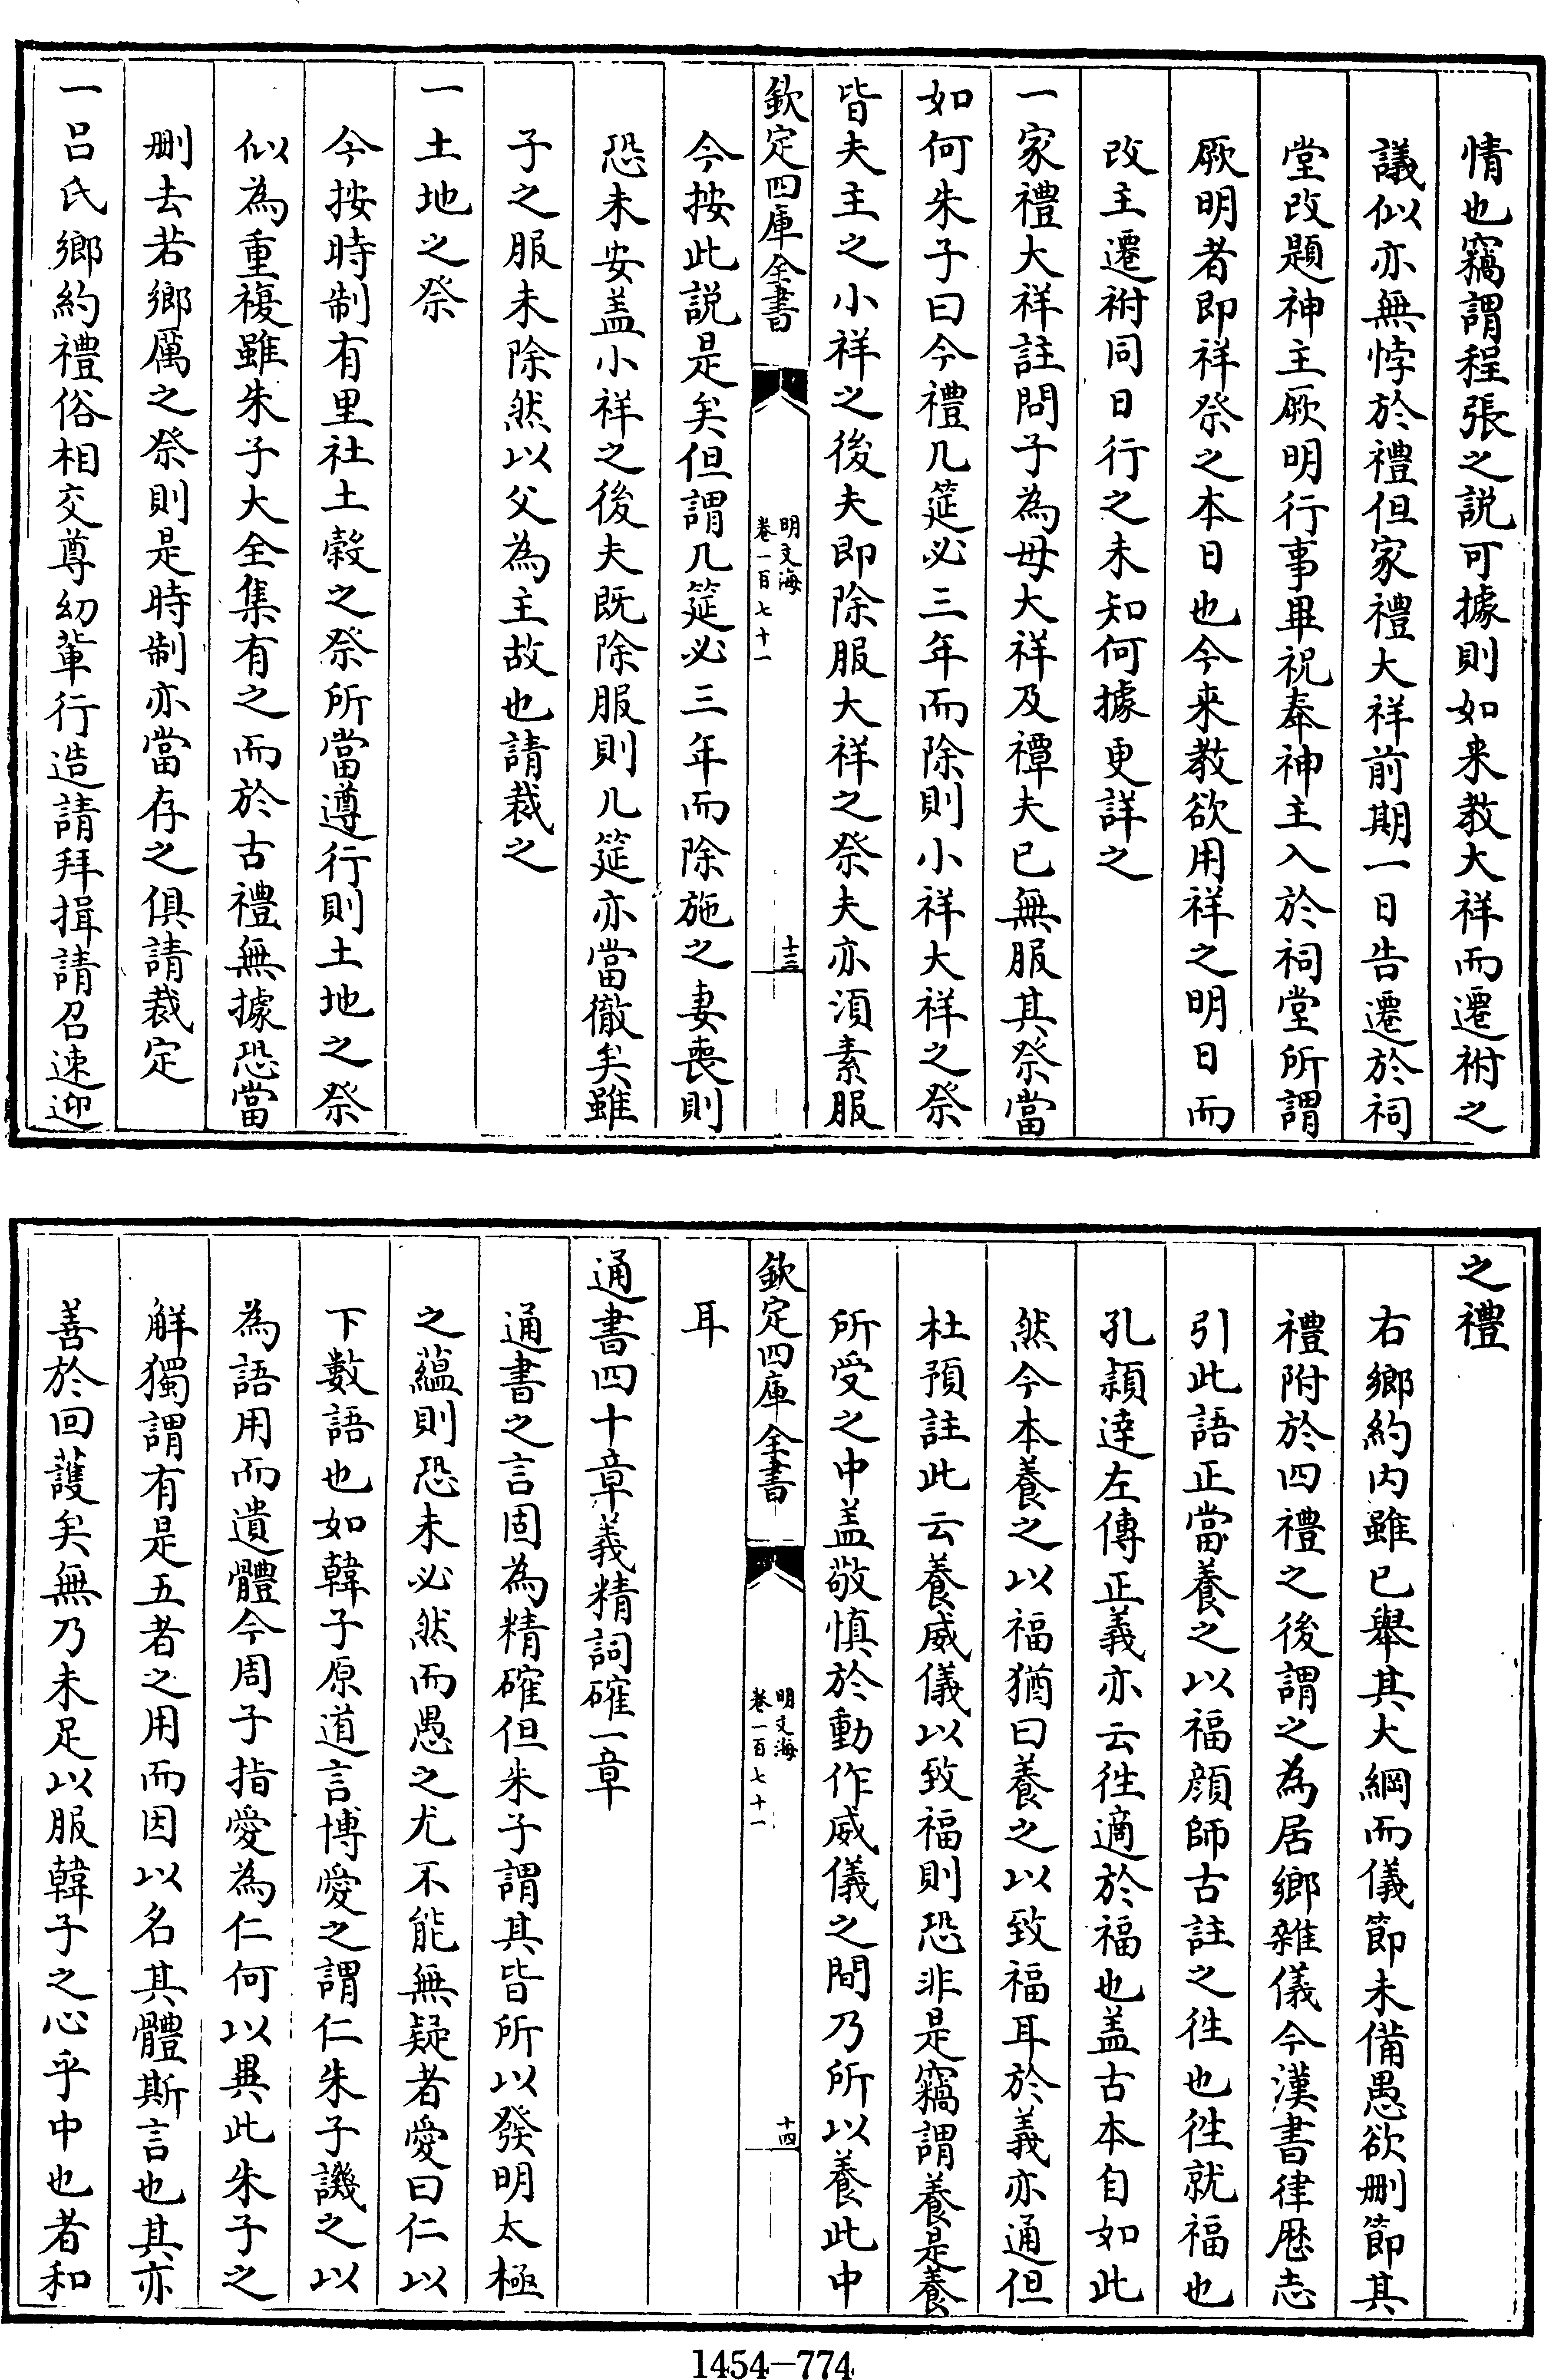 情也竊謂程張之説可據則如来教大祥而遷祔之
議似亦無悖於禮但家禮大祥前期一日告遷於祠
堂改題神主厥明行事畢祝奉神主入於祠堂所謂
厥明者即祥祭之本日也今来教欲用祥之明日而
改主遷祔同日行之未知何據更詳之
一家禮大祥註問子為母大祥及禫夫已無服其祭當
如何朱子曰今禮几筵必三年而除則小祥大祥之祭
皆夫主之小祥之後夫即除服大祥之祭夫亦須素服
欽定四庫全書
明文海
卷一百七十一
十三
今按此説是矣但謂几筵必三年而除施之妻喪則
恐未安盖小祥之後夫既除服則几筵亦當徹矣雖
子之服未除然以父為主故也請裁之
一土地之祭
今按時制有里社土穀之祭所當遵行則土地之祭
似為重複雖朱子大全集有之而於古禮無據恐當
刪去若鄉厲之祭則是時制亦當存之俱請裁定
一呂氏鄉約禮俗相交尊幼輩行造請拜揖請召速迎
之禮
右鄉約内雖已舉其大綱而儀節未備愚欲刪節其
禮附於四禮之後謂之為居鄉雜儀今漢書律歷志
引此語正當養之以福顔師古註之徃也徃就福也
孔頴達左傳正義亦云徃適於福也盖古本自如此
然今本養之以福猶曰養之以致福耳於義亦通但
杜預註此云養威儀以致福則恐非是竊謂養是養
所受之中盖敬慎於動作威儀之間乃所以養此中
欽定四庫全書
明文海
卷一百七十一
十四
耳
通書四十章義精詞確一章
通書之言固為精確但朱子謂其皆所以發明太極
之蘊則恐未必然而愚之尤不能無疑者愛曰仁以
下數語也如韓子原道言博愛之謂仁朱子譏之以
為語用而遺體今周子指愛為仁何以異此朱子之
解獨謂有是五者之用而因以名其體斯言也其亦
善於回護矣無乃未足以服韓子之心乎中也者和
1454-774